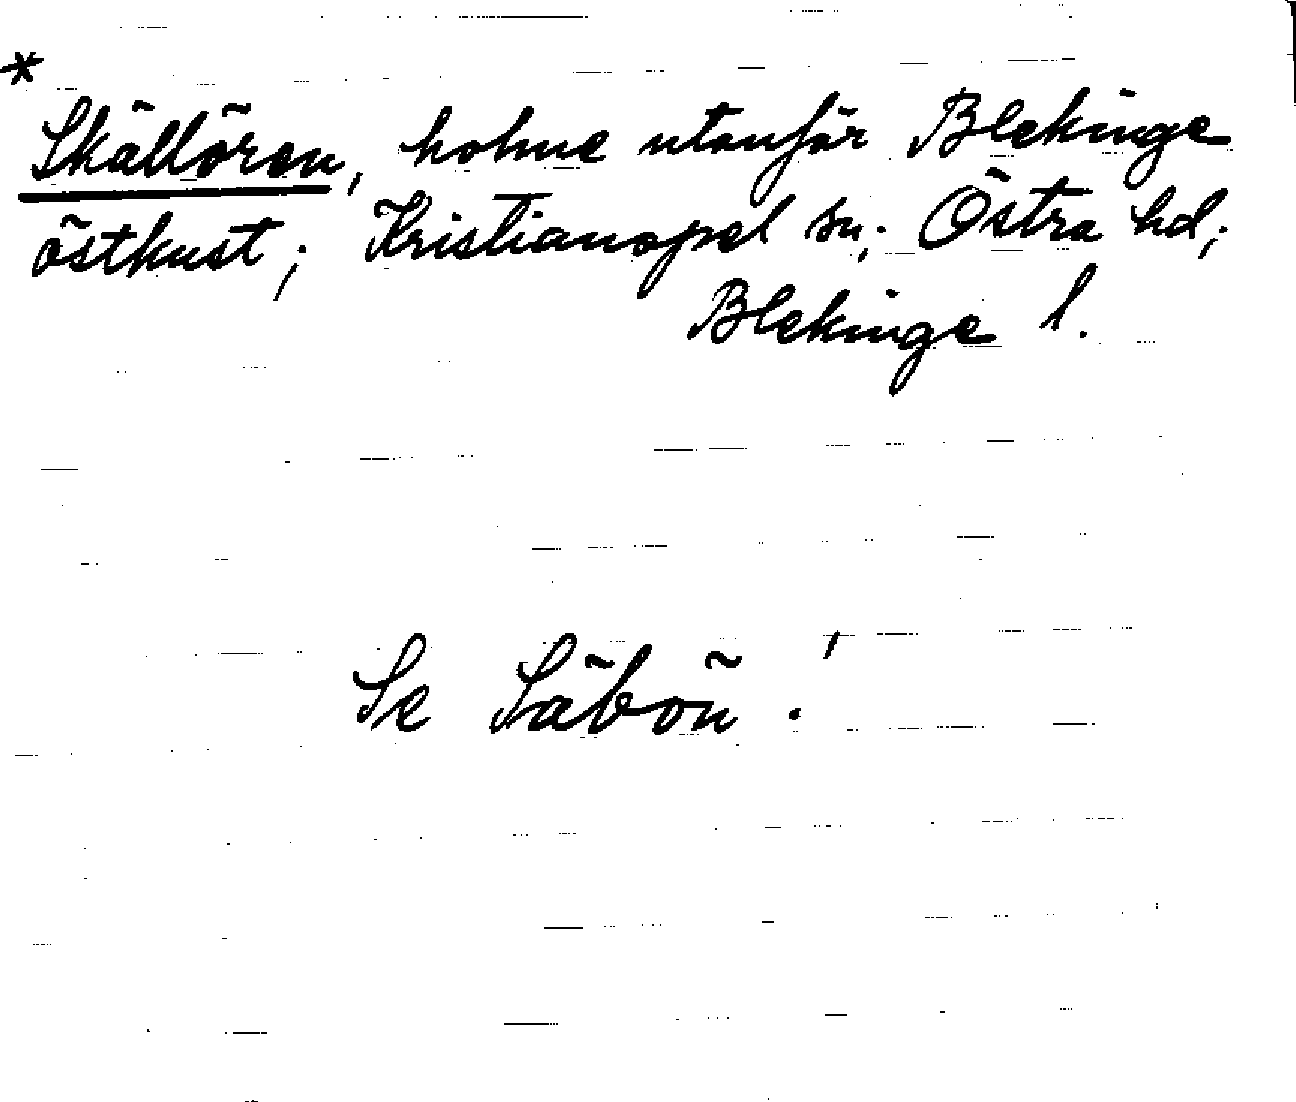 *
Skällören, holme utanför Blekinge
östkust; Kristianopel sn; Östra hd;
Blekinge l.
Se Säbön!